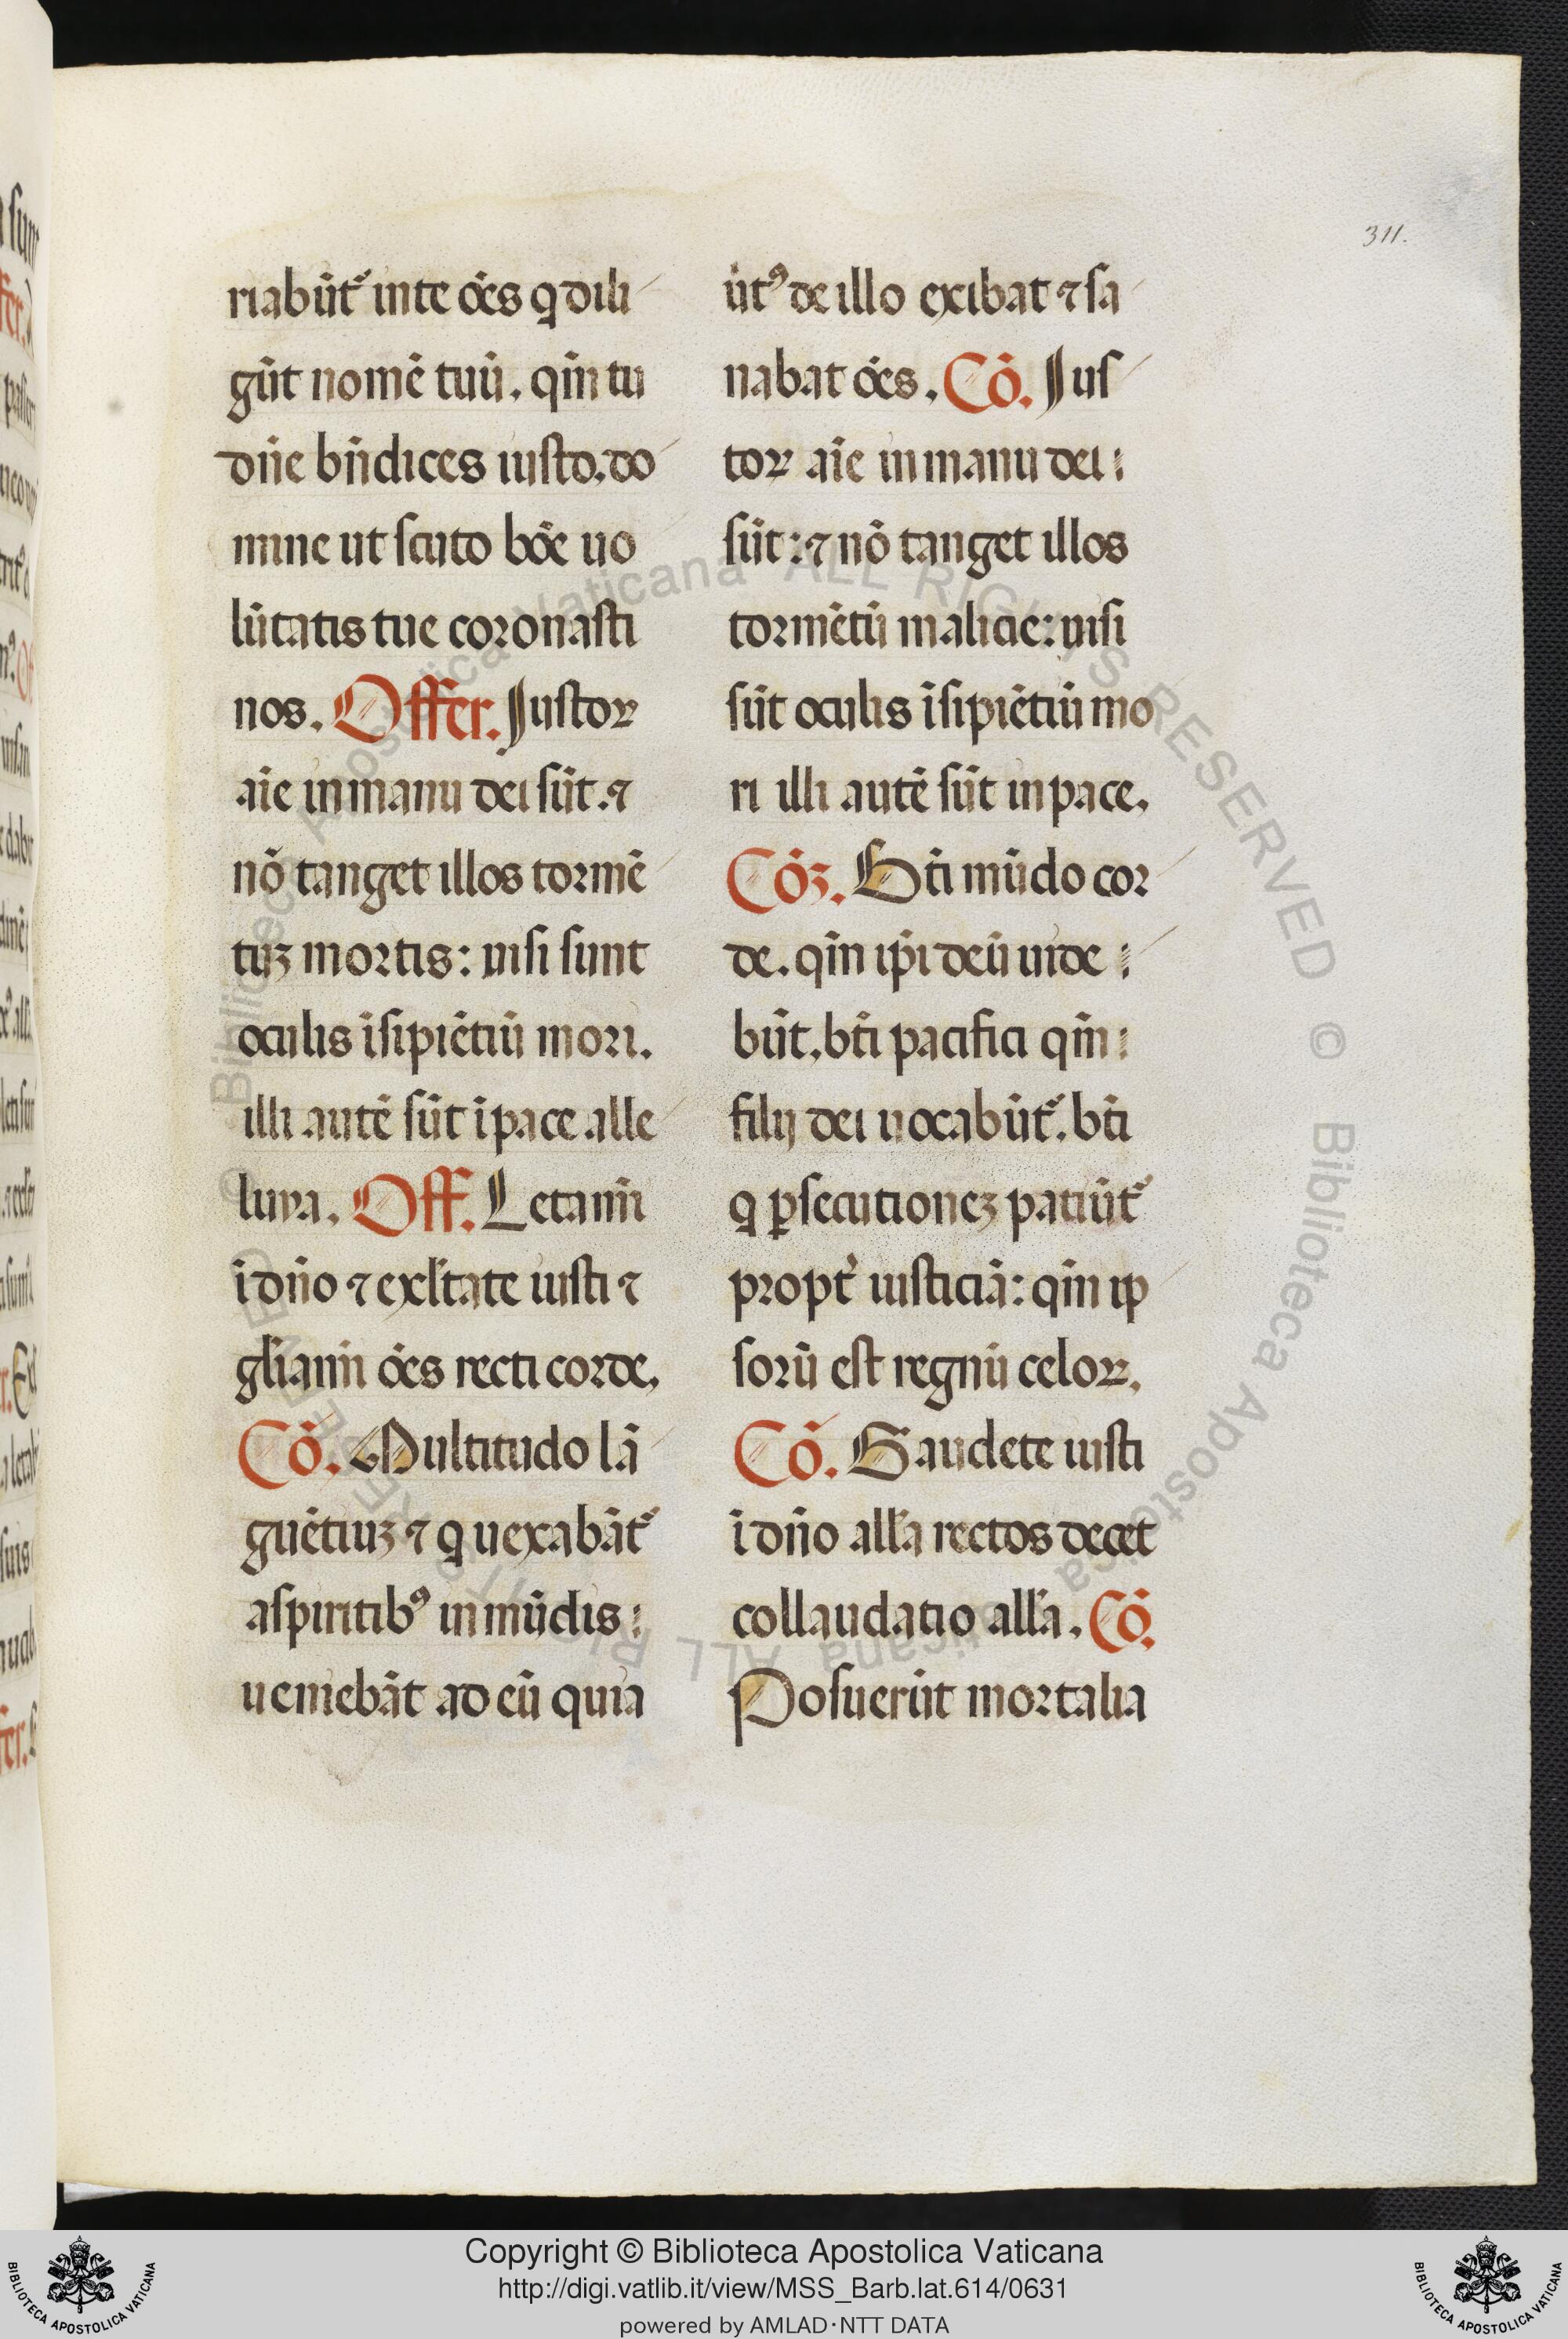 311.
riabūt᷑ in te ōēs q̄ dili
gūt nomē tuū. qm̄ tu
dn̄e bn̄dices iusto. do
mine ut scuto bōe uo
lūtatis tue coronasti
nos. Offer. Iustoꝝ
aīe in manu dei sūt. ⁊
nō tanget illos tormē
tuꝫ mortis: uisi sunt
oculis īsipiētiū mori.
illi autē sūt ī pace alle
luya. Off. Letamī
ī dn̄o ⁊ exl̄tate iusti ⁊
gl̄iamī ōēs recti corde.
Cō. Multitudo lā
guētiuꝫ ⁊ q̄ uexabāt᷑
a spiritibꝰ inmūdis
ueniebāt ad eū quia
ūtꝰ de illo exibat ⁊ sa
nabat ōēs. Cō. Ius
toꝝ aīe in manu dei
sūt: ⁊ nō tanget illos
tormētū malicie: uisi
sūt oculis īsipiētiū mo
ri illi autē sūt in pace.
Cōꝫ. Bt̄i mūdo cor
de. qm̄ ip̄i deū uide
būt. bt̄i pacifici qm̄
filij dei uocabūt᷑. bt̄i
q̄ ꝑsecutioneꝫ patiūt᷑
propt̄ iusticiā: qm̄ ip
sorū est regnū celoꝝ.
Cō. Gaudete iusti
ī dn̄o all̄a rectos decet
collaudatio all̄a. Cō.
Posuerūt mortalia
Copyright © Biblioteca Apostolica Vaticana
http://digi.vatlib.it/view/MSS_Barb.lat.614/0631
powered by AMLAD·NTT DATA
BIBLIOTECA APOSTOLICA VATICANA
BIBLIOTECA APOSTOLICA VATICANA